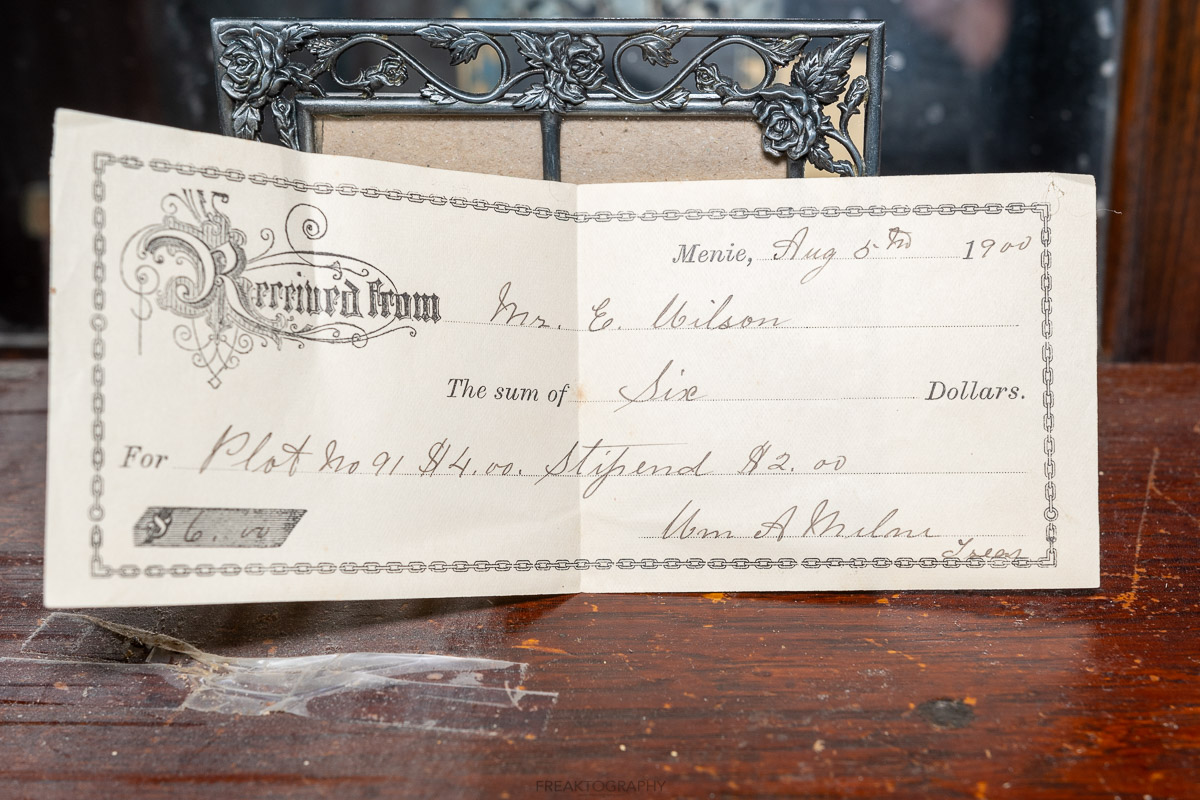 Menie, Aug 5th 1900
Received from Mr. E. Wilson
The sum of Six Dollars.
For Plot No 91 $4.00. Stipend $2.00
$ 6.00
Wm A Milne
Treas
FREAKTOGRAPHY